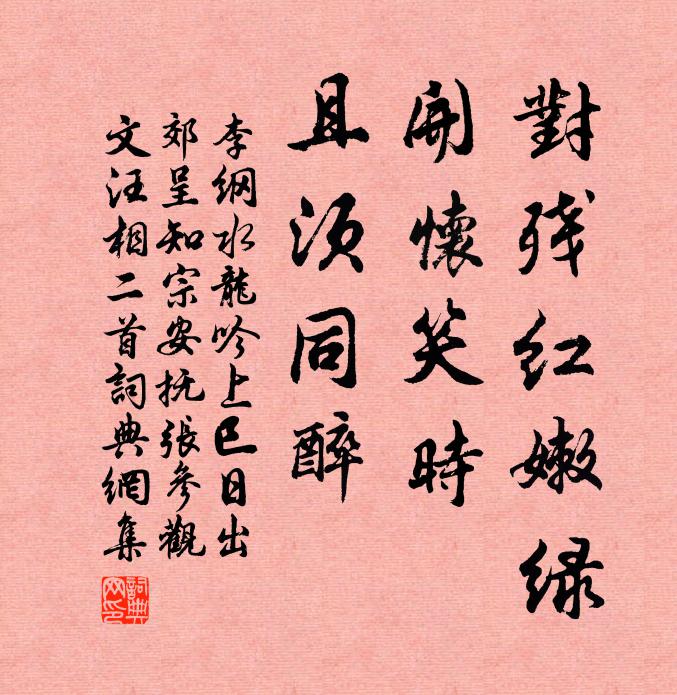 對残红嫩緑
開懷笑時
且須同醉
李纲水龍吟上巳日出
郊呈知宗安抚張參觀
文汪相二首詞典網集
詞典網印